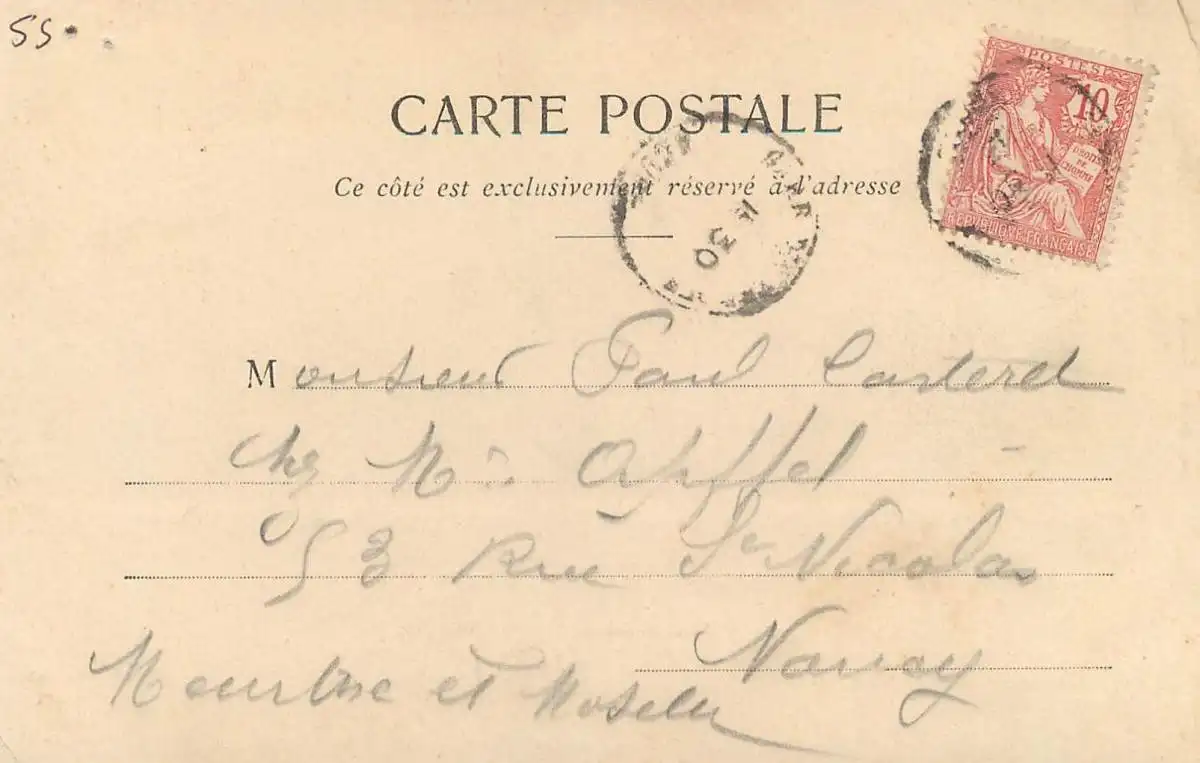 55
CARTE POSTALE
Ce côté est exclusivement réservé à l'adresse
POSTES
10
DROITS DE L'HOMME
REPUBLIQUE FRANÇAISE
30
Monsieur Paul Casteret
Chez M. Apffel
53 Rue St Nicolas
Nancy
Meurthe et Moselle